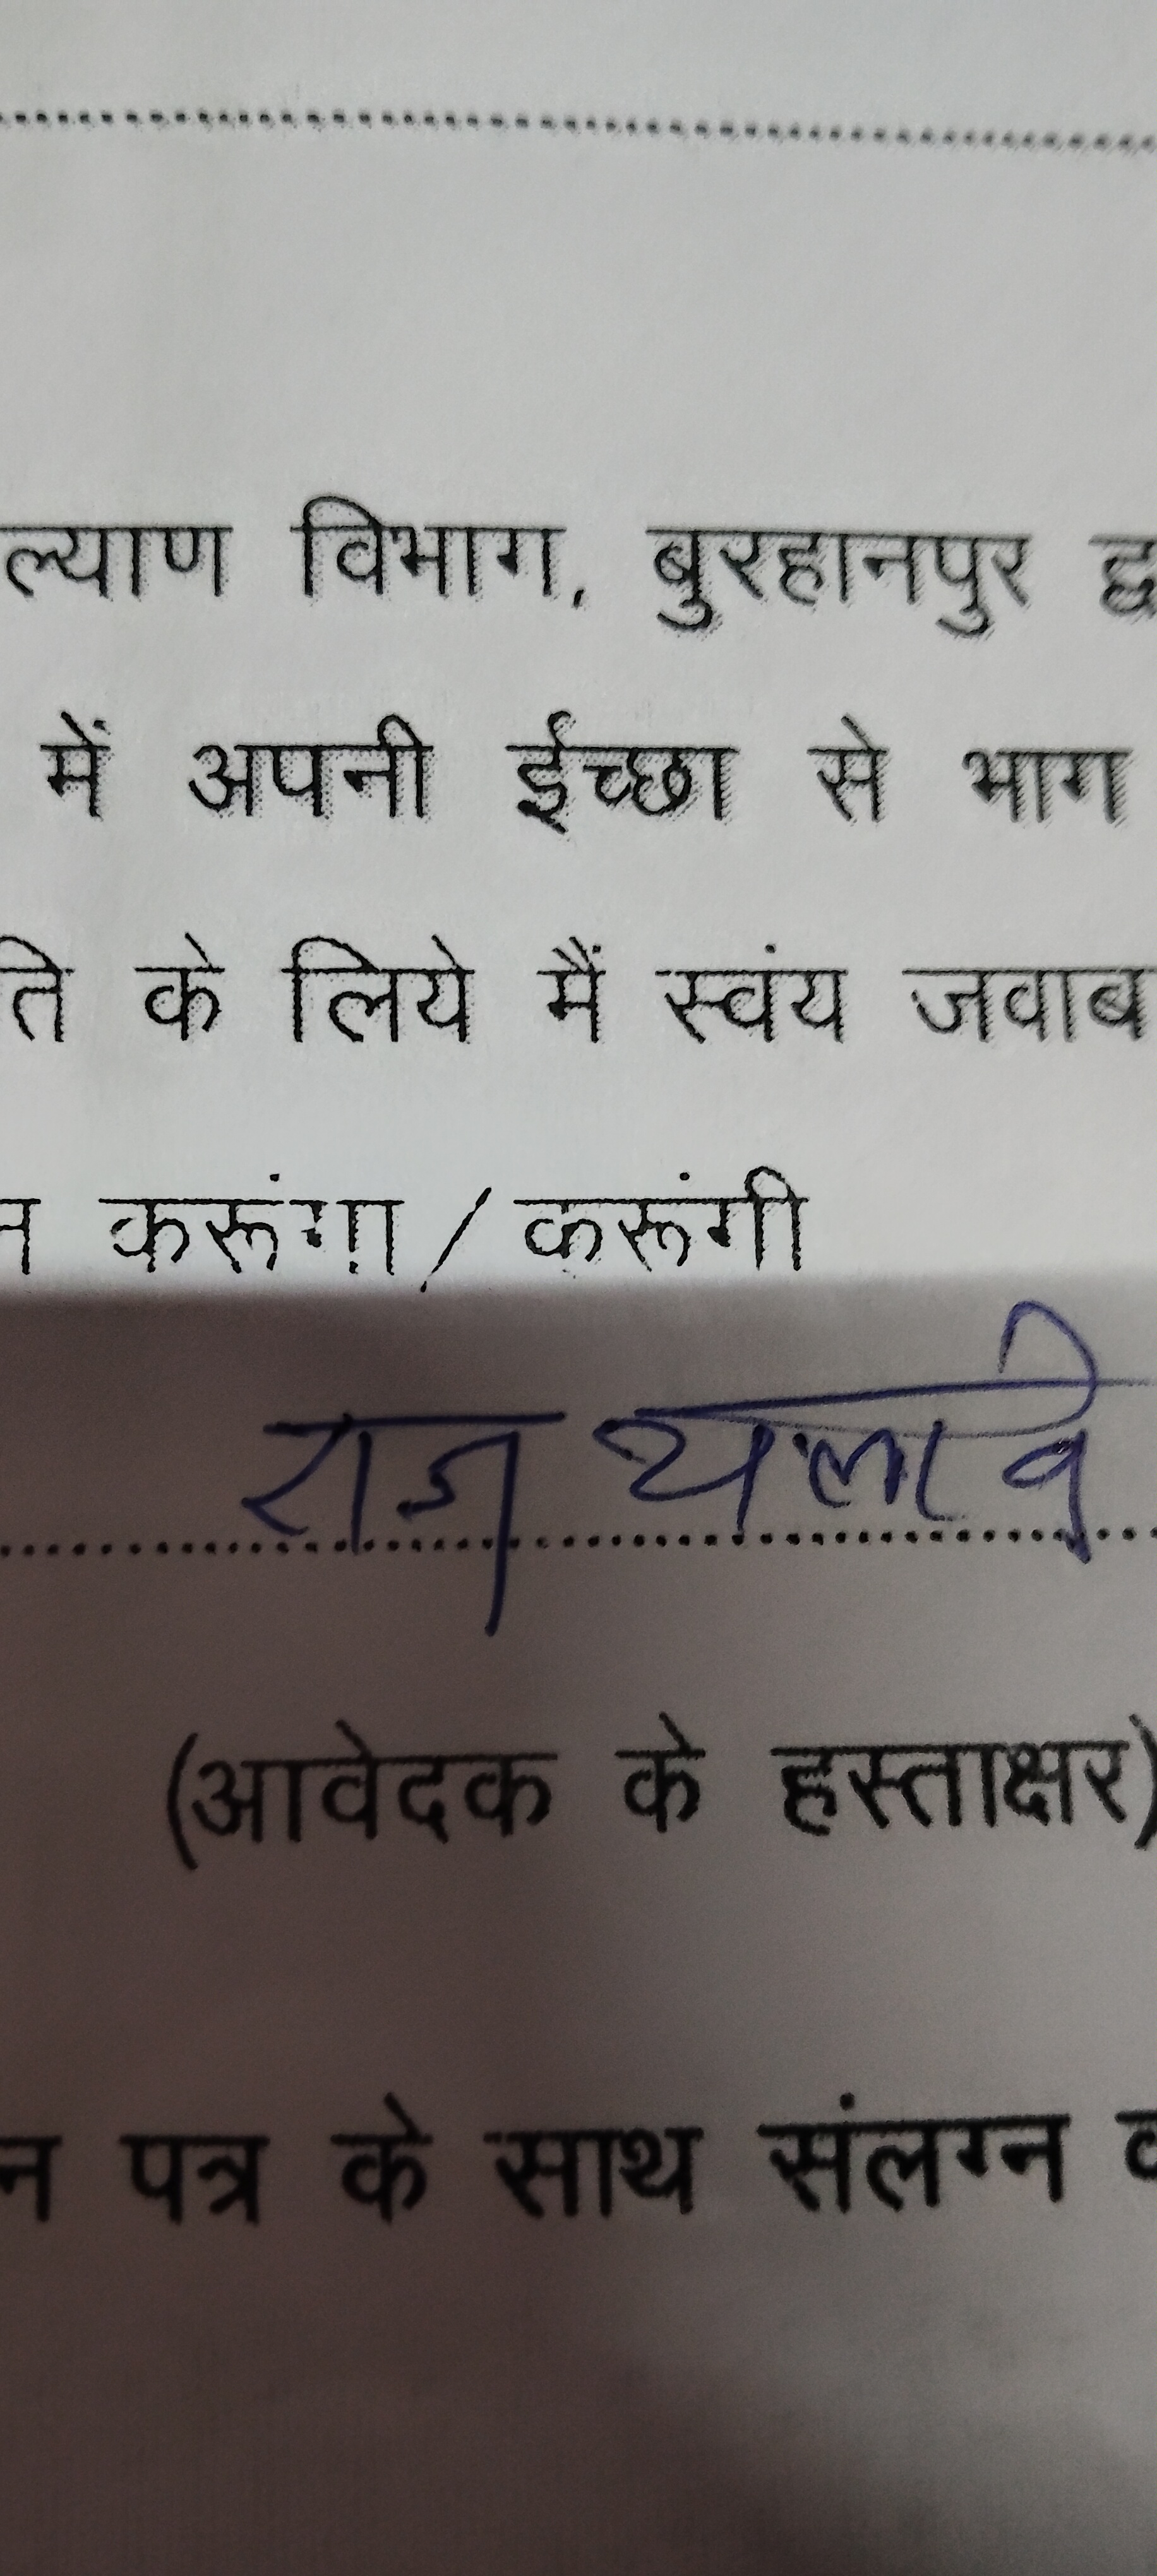 ल्याण विभाग, बुरहानपुर द्व
में अपनी ईच्छा से भाग
ति के लिये मैं स्वंय जवाब
न करूंगा / करूंगी
राज
(आवेदक के हस्ताक्षर)
न पत्र के साथ संलग्न